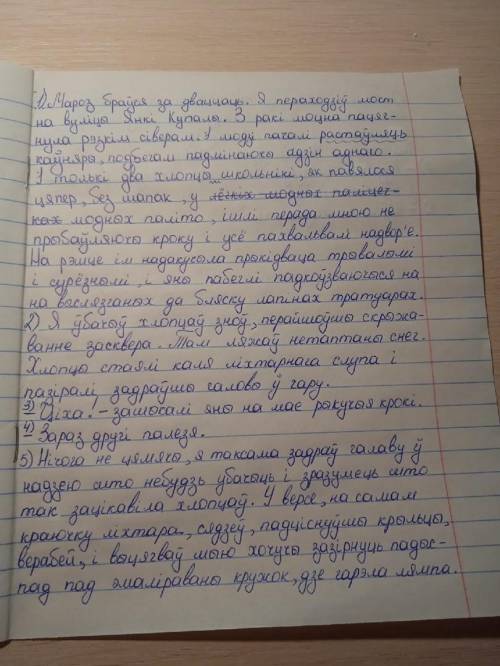 1) Мароз браўся за дваццаць. Я пераходзіў мост
на вуліцы Янкі Купалы. З ракі моцна пацяг-
нула рэзкім сіверам. І людзі пачалі растаўляць
каўняры, подбегам падмінаючы адзін аднаго.
І толькі два хлопцы школьнікі, як павялося
цяпер, без шапак, у лёгкіх модных паліцеч-
ках модных паліто, ішлі перада мною не
прыбаўляючы кроку і усё пахвальвалі надвор'е.
На рэшце ім надакусыла прыкідваца тровалымі
і сурёзнымі, і яны пабеглі падкоўзваючыся на
на васлязганых да бляску лапінах тратуарах.
2) Я ўбачыў хлопцаў зноў, перайшоўшы скрыжа-
ванне засквера. Там ляжаў нетаптаны снег.
Хлопцы стаялі каля ліхтарнага слупа і
пазіралі, задраўшы саловы ў гару.
3) Ціха! - зашыкалі яны на мае рыкучыя крокі.
4) Зараз другі палезя.
5) Нічога не цямячы, я таксама задраў галаву ў
надзею што небудзь убачыць і зразумець што
так зацікавіла хлопцаў. У версе, на самам
краючку ліхтара, сядзеў, падціснуўшы крыльцы,
верабей, і выцягваў шыю хочучы зазірнуць падыс-
пад пад эмаліраваны кружок, дзе гарэла лямпа.